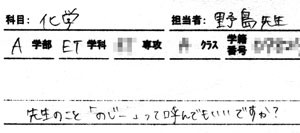 科目: 化学 担当者: 野島先生
A 学部 ET 学科 専攻 A クラス 学籍番号
先生のこと「のじー」って呼んでもいいですか?